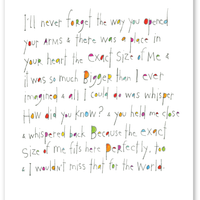 I'll never forget the way you opened
your arms & there was a place in
your heart the exact size of me &
it was so much bigger than I ever
imagined & all I could do was whisper
How did you know? & you held me close
& whispered back Because the exact
size of me fits here perfectly, too
& I wouldn't miss that for the world.